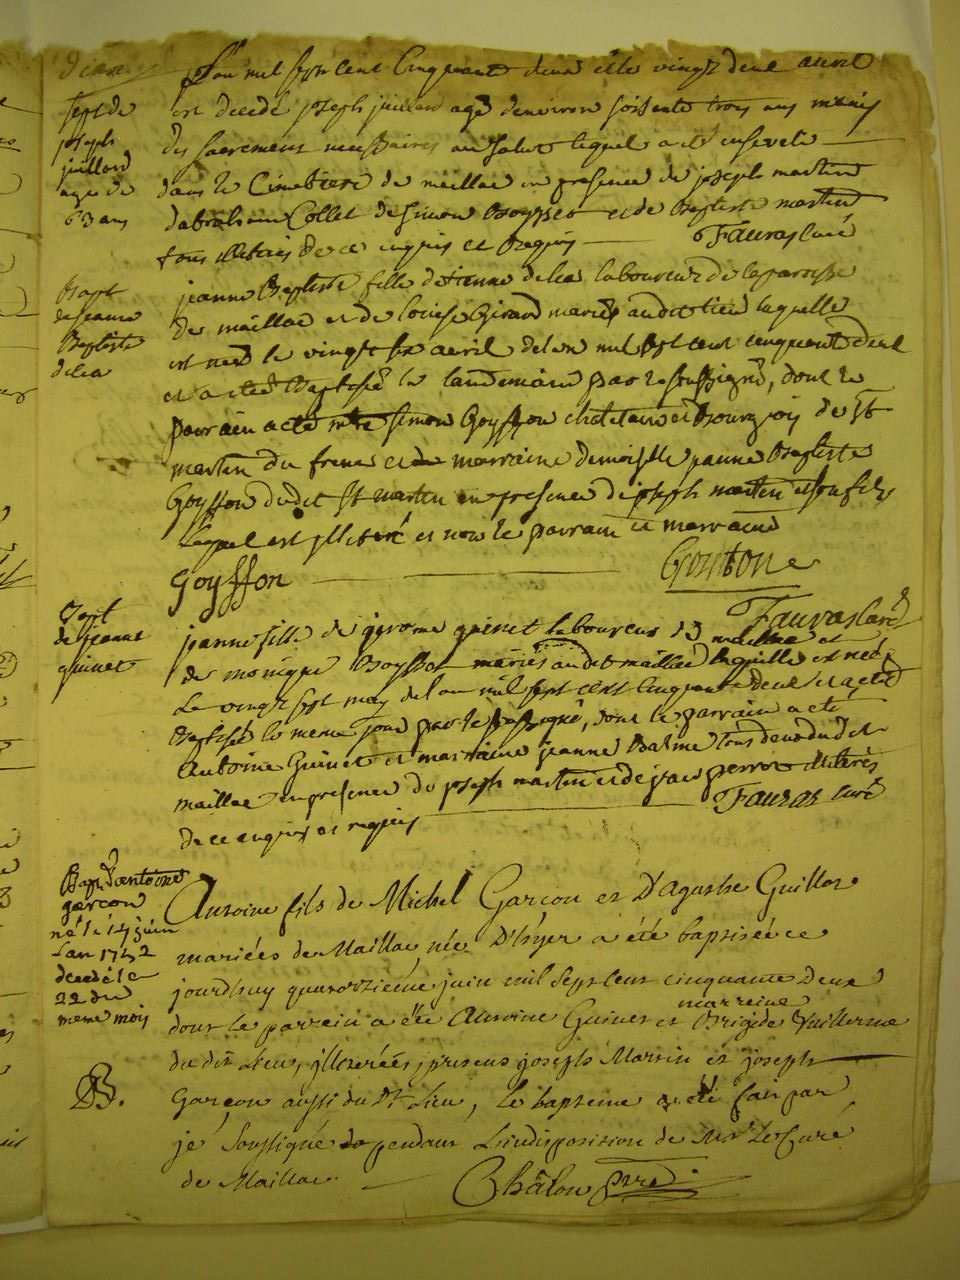 L'an mil sept cent cinquant deux et le vingt deux avril
sept de
joseph
juillard
age de
63 ans
est decedé joseph juillard agé denviron soissente trois ans munis
des sacremens nessaires au salut lequel a été enseveli
dans le cimetiere de maillac en presence de joseph martin
dabraham Collet de simon et de Baptiste martin
tous illiterés de ce enquis et requis
Fauras curé
Bapt
de jeanne
Baptiste
delea
jeanne Baptiste fille detienne delea laboureur de la paroisse
de maillac et de louise Girard mariés audit lieu laquelle
est neé le vingt six avril de lan mil sept cent cinquante deux
et a eté Baptisé le landemain par le soussigné, dont le
parrain a eté mtre simon Goyffon chatelain et Bourgois de st
martin du frene et marraine demoiselle jeanne Baptiste
Goyffon dudit st martin en presence de joseph martin et son fils
lequel est illiteré et non le parrain et marraine
Goyffon
Fauras curé
Bapt
de jeanne
guinet
jeanne fille de gerome guinet laboureur a maillac et
de monique mariés audit maillac laquelle est neé
le vingt sept may del an mil sept cent cinquante deux et a eté
Baptisé le meme jour par le soussigné, dont le parrain a eté
antoine Guinet et marraine jeanne Balme tous deux dudit
maillac en presence de joseph martin et de perrot illiterés
de ce enquis et requis
Fauras curé
Bapt. dantoine
garcon
né le 14 juin
Lan 1752
decedé le
22 du
meme mois
Antoine fils de Michel Garçon et D'agathe Guillot
mariées de Maillac, née D'hyer a été baptisée ce
jourdhuy quatorzieme juin mil sept cent cinquante Deux
dont le parrein a été Antoine Guinet et marreine Brigide Vuillerme
du dit Lieu, illiterées, presens joseph Martin et joseph
Garçon aussi du Dt Lieu, le baptême a été fait par
je soussigné pendant L'indisposition de Mr Le Curé
de Maillac
Châlon